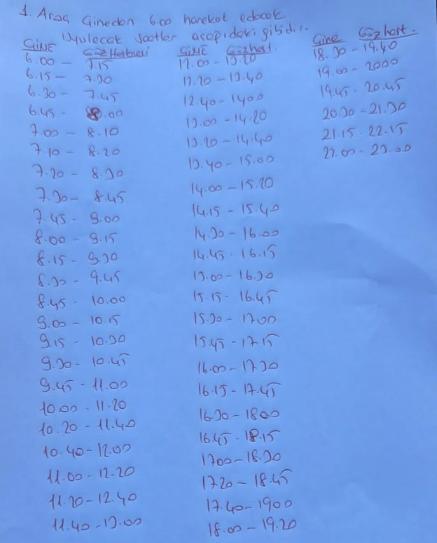 1. Araç Cineden 6.00 hareket edecek
Uyulacak saatler aşağıdaki gibidir.
Cine
6.00 - 7.15
6.15 - 7.30
6.30 - 7.45
6.45 - 8.00
7.00 - 8.10
7.10 - 8.20
7.20 - 8.30
7.30 - 8.45
7.45 - 9.00
8.00 - 9.15
8.15 - 9.30
8.30 - 9.45
8.45 - 10.00
9.00 - 10.15
9.15 - 10.30
9.30 - 10.45
9.45 - 11.00
10.00 - 11.20
10.20 - 11.40
10.40 - 12.00
11.00 - 12.20
11.20 - 12.40
11.40 - 13.00
Cine
12.00 - 13.20
12.20 - 13.40
12.40 - 14.00
13.00 - 14.20
13.20 - 14.40
13.40 - 15.00
14.00 - 15.20
14.15 - 15.40
14.30 - 16.00
14.45 - 16.15
15.00 - 16.30
15.15 - 16.45
15.30 - 17.00
15.45 - 17.15
16.00 - 17.30
16.15 - 17.45
16.30 - 18.00
16.45 - 18.15
17.00 - 18.30
17.20 - 18.45
17.40 - 19.00
18.00 - 19.20
Cine
18.30 - 19.40
19.00 - 20.00
19.45 - 20.45
20.30 - 21.30
21.15 - 22.15
22.00 - 23.00